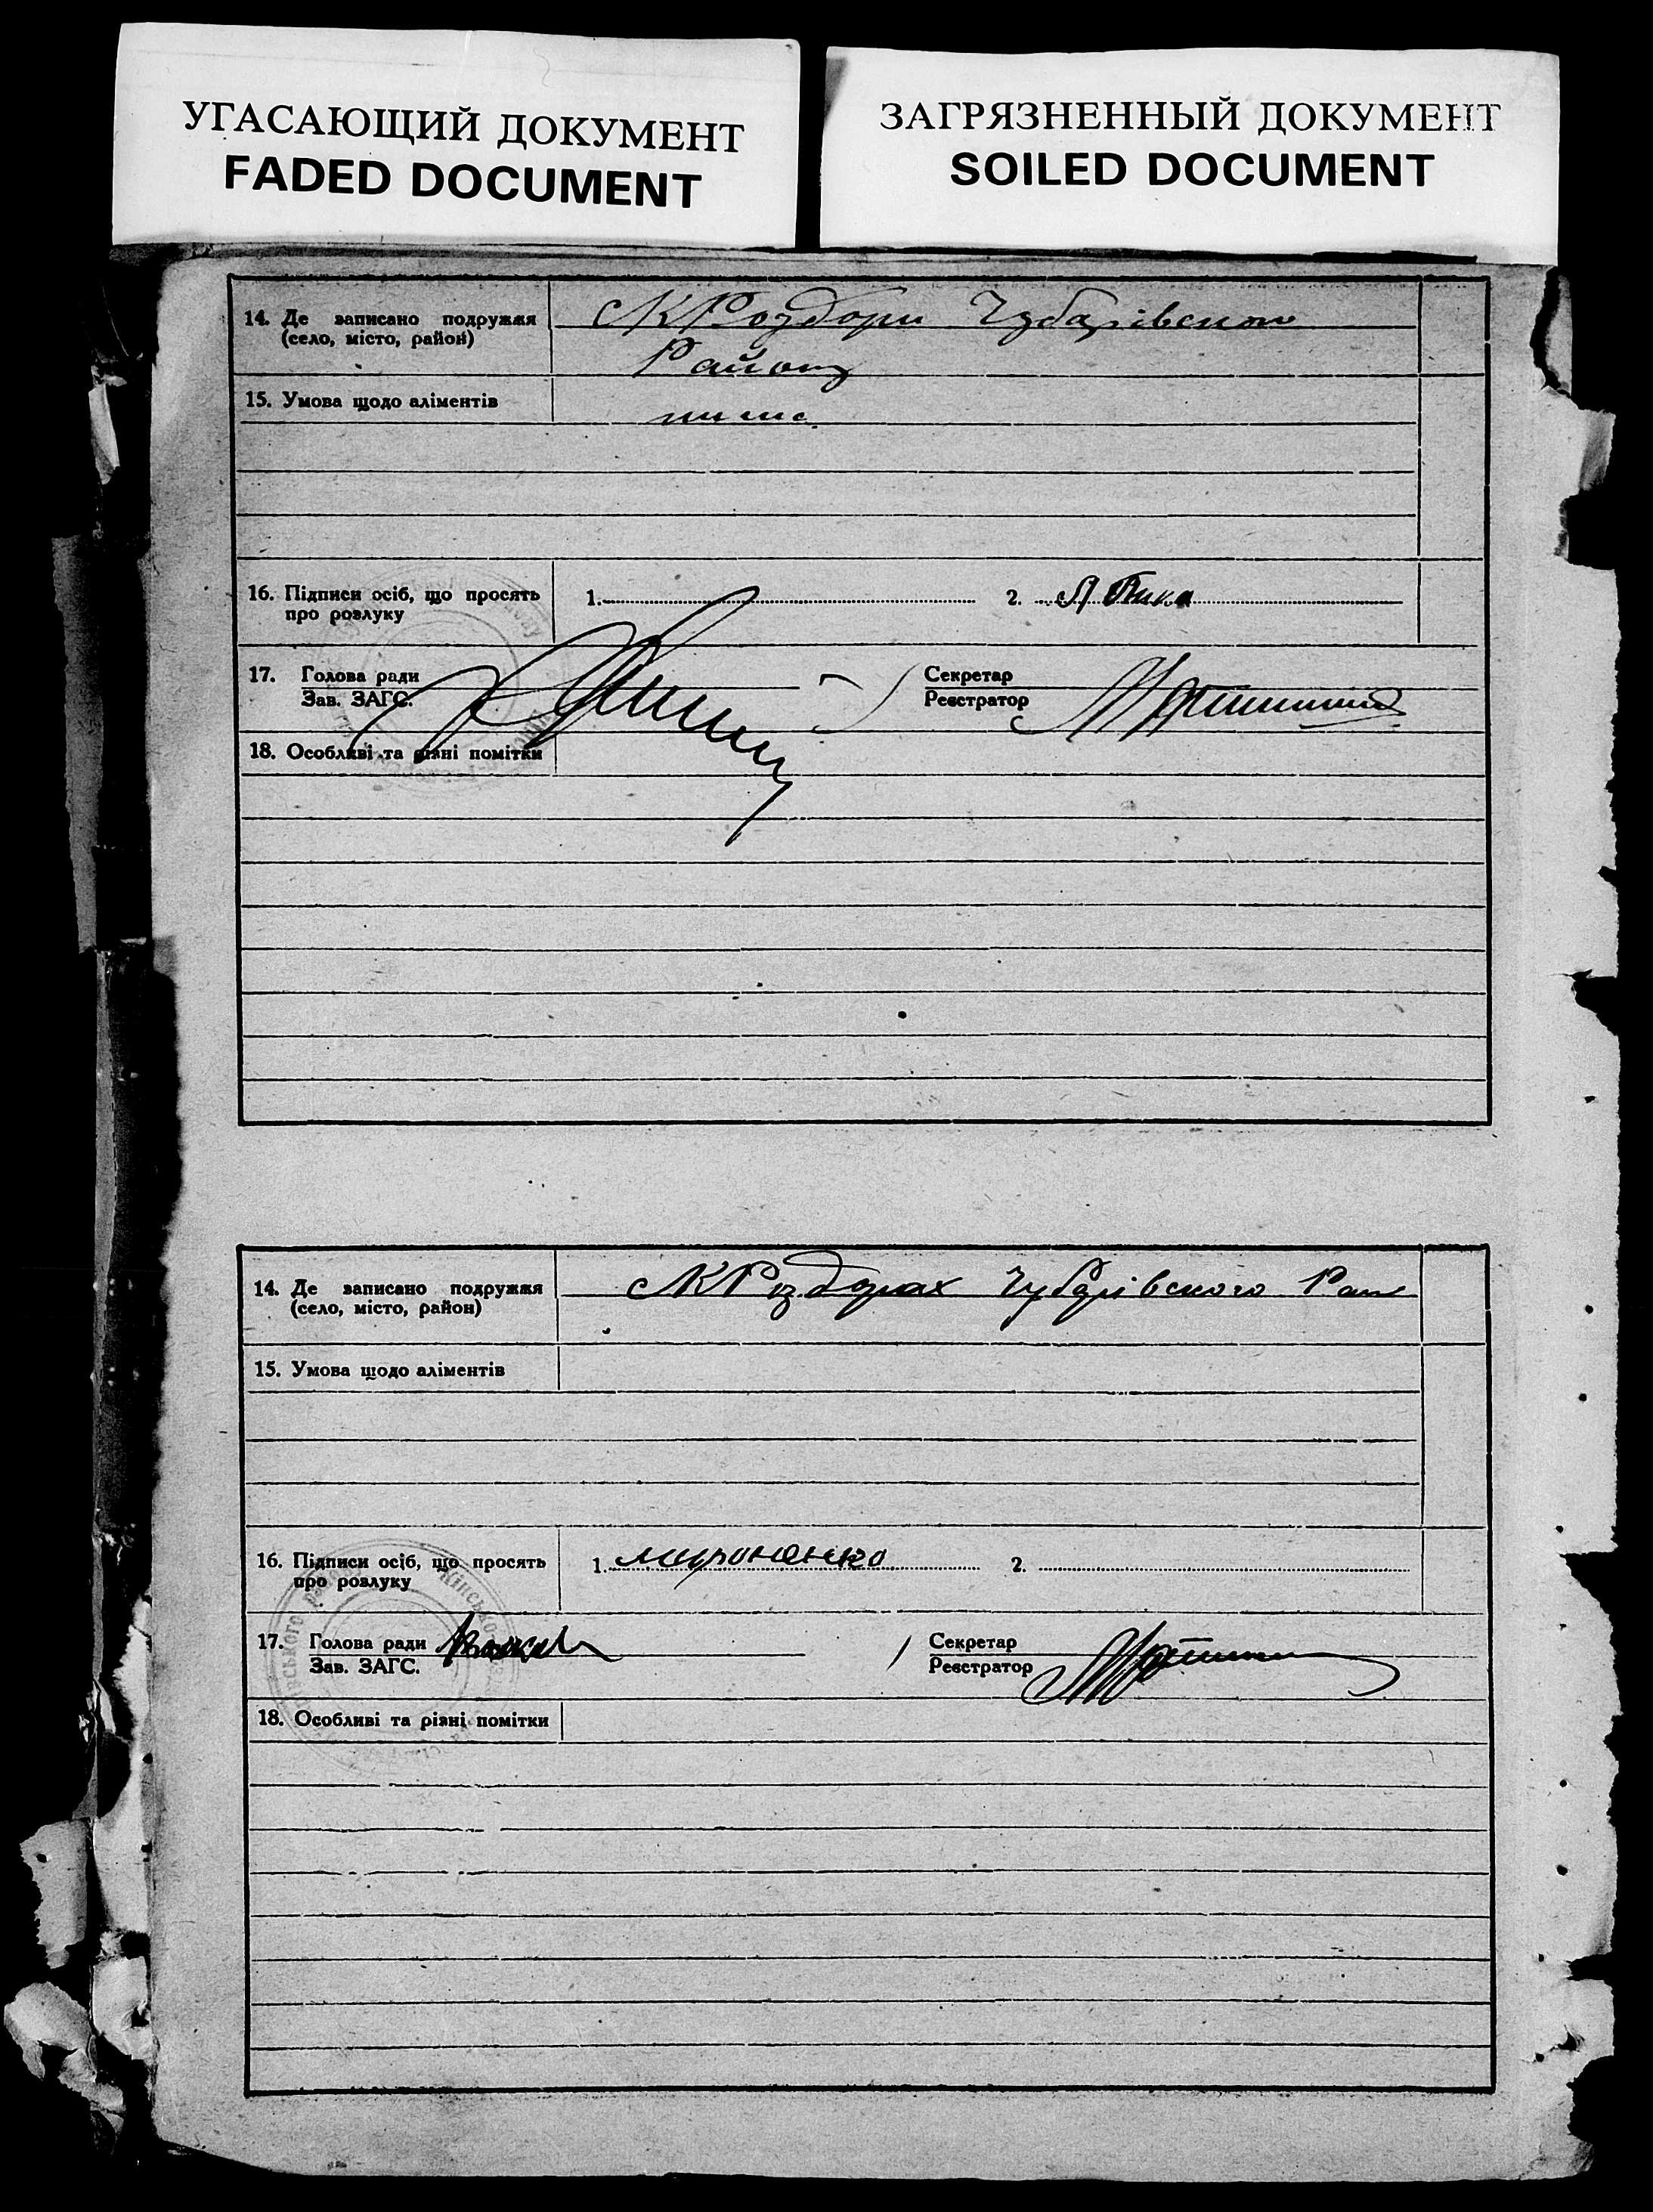 УГАСАЮЩИЙ ДОКУМЕНТ
FADED DOCUMENT
ЗАГРЯЗНЕННЫЙ ДОКУМЕНТ
SOILED DOCUMENT
14. Де записано подружжя
(село, місто, район)
Чубарівського
Району
15. Умова щодо аліментів
16. Підписи осіб, що просять
про розлуку
1.
2.
17. Голова ради
Зав. ЗАГС.
Секретар
Реєстратор
18. Особливі та різні помітки
14. Де записано подружжя
(село, місто, район)
Чубарівського Рай
15. Умова щодо аліментів
16. Підписи осіб, що просять
про розлуку
1. Мироненко
2.
17. Голова ради
Зав. ЗАГС.
Секретар
Реєстратор
18. Особливі та різні помітки